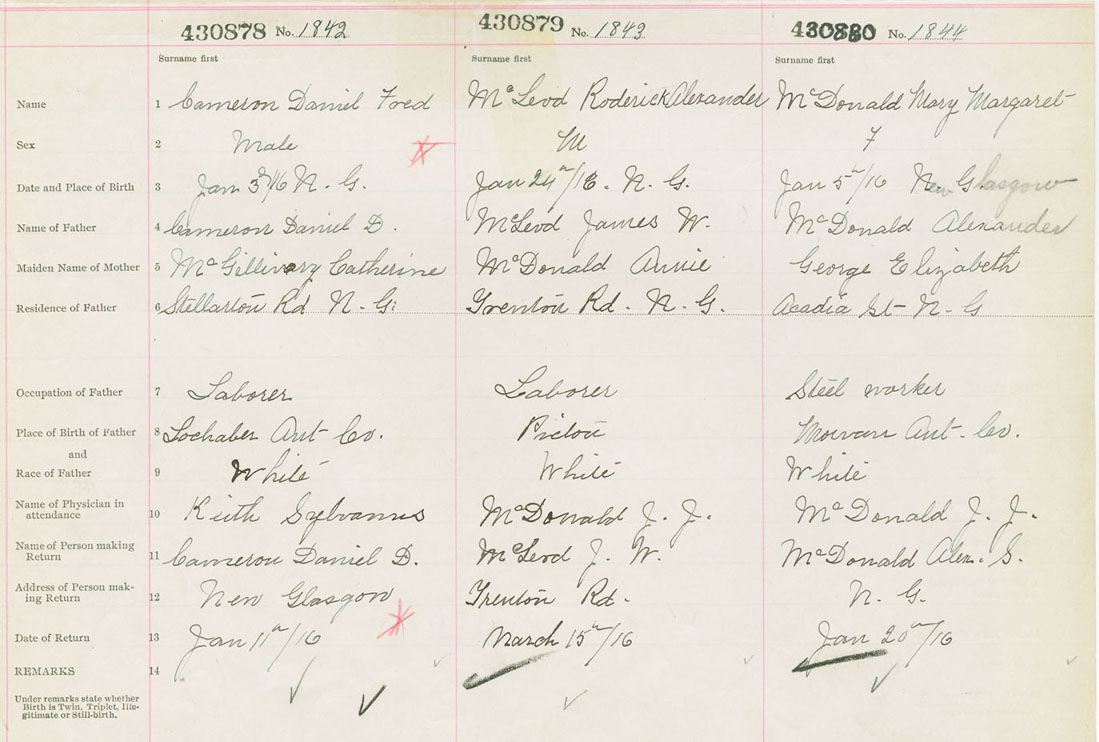 430878 No. 1842 430879 No. 1843 430880 No. 1844
Surname first Surname first Surname first
Name 1 Cameron Daniel Fred McLeod Roderick Alexander McDonald Mary Margaret
Sex 2 Male M F
Date and Place of Birth 3 Jan 3rd/16 N. G. Jan 24th/16. N. G. Jan 5th/16 New Glasgow
Name of Father 4 Cameron Daniel D. McLeod James W. McDonald Alexander
Maiden Name of Mother 5 McGillivary Catherine McDonald Annie George Elizabeth
Residence of Father 6 Stellarton Rd N. G. Trenton Rd. N. G. Acadia St- N. G
Occupation of Father 7 Laborer Laborer Steel worker
Place of Birth of Father 8 Lochaber Ant Co. Pictou Ant. Co.
and
Race of Father 9 White White White
Name of Physician in
attendance 10 Keith Sylvanus McDonald J. J. McDonald J. J.
Name of Person making
Return 11 Cameron Daniel D. McLeod J. W. McDonald Alex. G.
Address of Person mak-
ing Return 12 New Glasgow Trenton Rd. N. G.
Date of Return 13 Jan 11th/16 March 15th/16 Jan 20th/16
REMARKS 14
Under remarks state whether
Birth is Twin, Triplet, Ille-
gitimate or Still-birth.